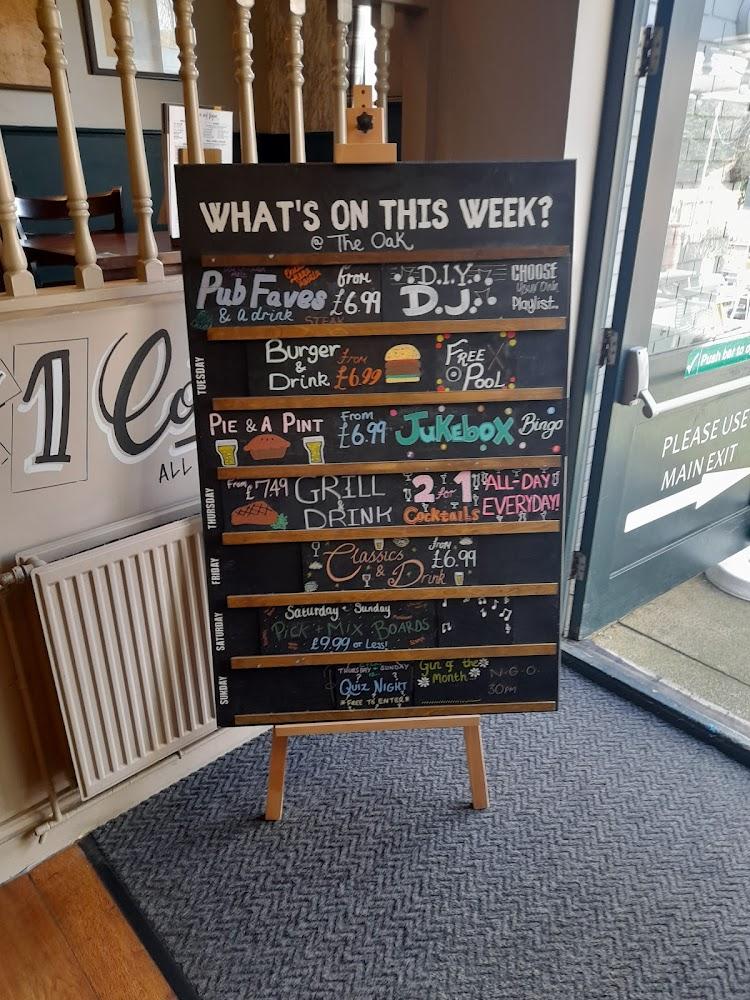 WHAT'S ON THIS WEEK?
@ The Oak
Pub Faves
& A drink
From
£6.99
STEAK
D.I.Y.
D.J.
CHOOSE
Your Own
Playlist
TUESDAY
Burger
& Drink
From
£6.99
FREE
POOL
PIE & A PINT
From
£6.99
JUKEBOX
Bingo
THURSDAY
From
£7.49
GRILL
& DRINK
2 for 1
Cocktails
ALL-DAY
EVERYDAY!
FRIDAY
Classics
& Drink
From
£6.99
SATURDAY
Saturday + Sunday
PICK + MIX BOARDS
£9.99 or Less!
SUNDAY
THURSDAY SUNDAY
QUIZ NIGHT
*FREE TO ENTER*
Gin of the
Month
N-G-O
30PM
1
Co
ALL
Push bar to o
PLEASE USE
MAIN EXIT